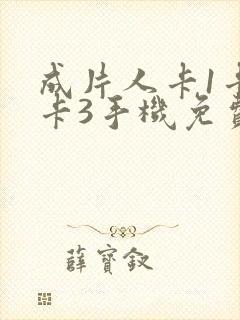 成片人卡1卡
卡3手機免費
薛寶釵